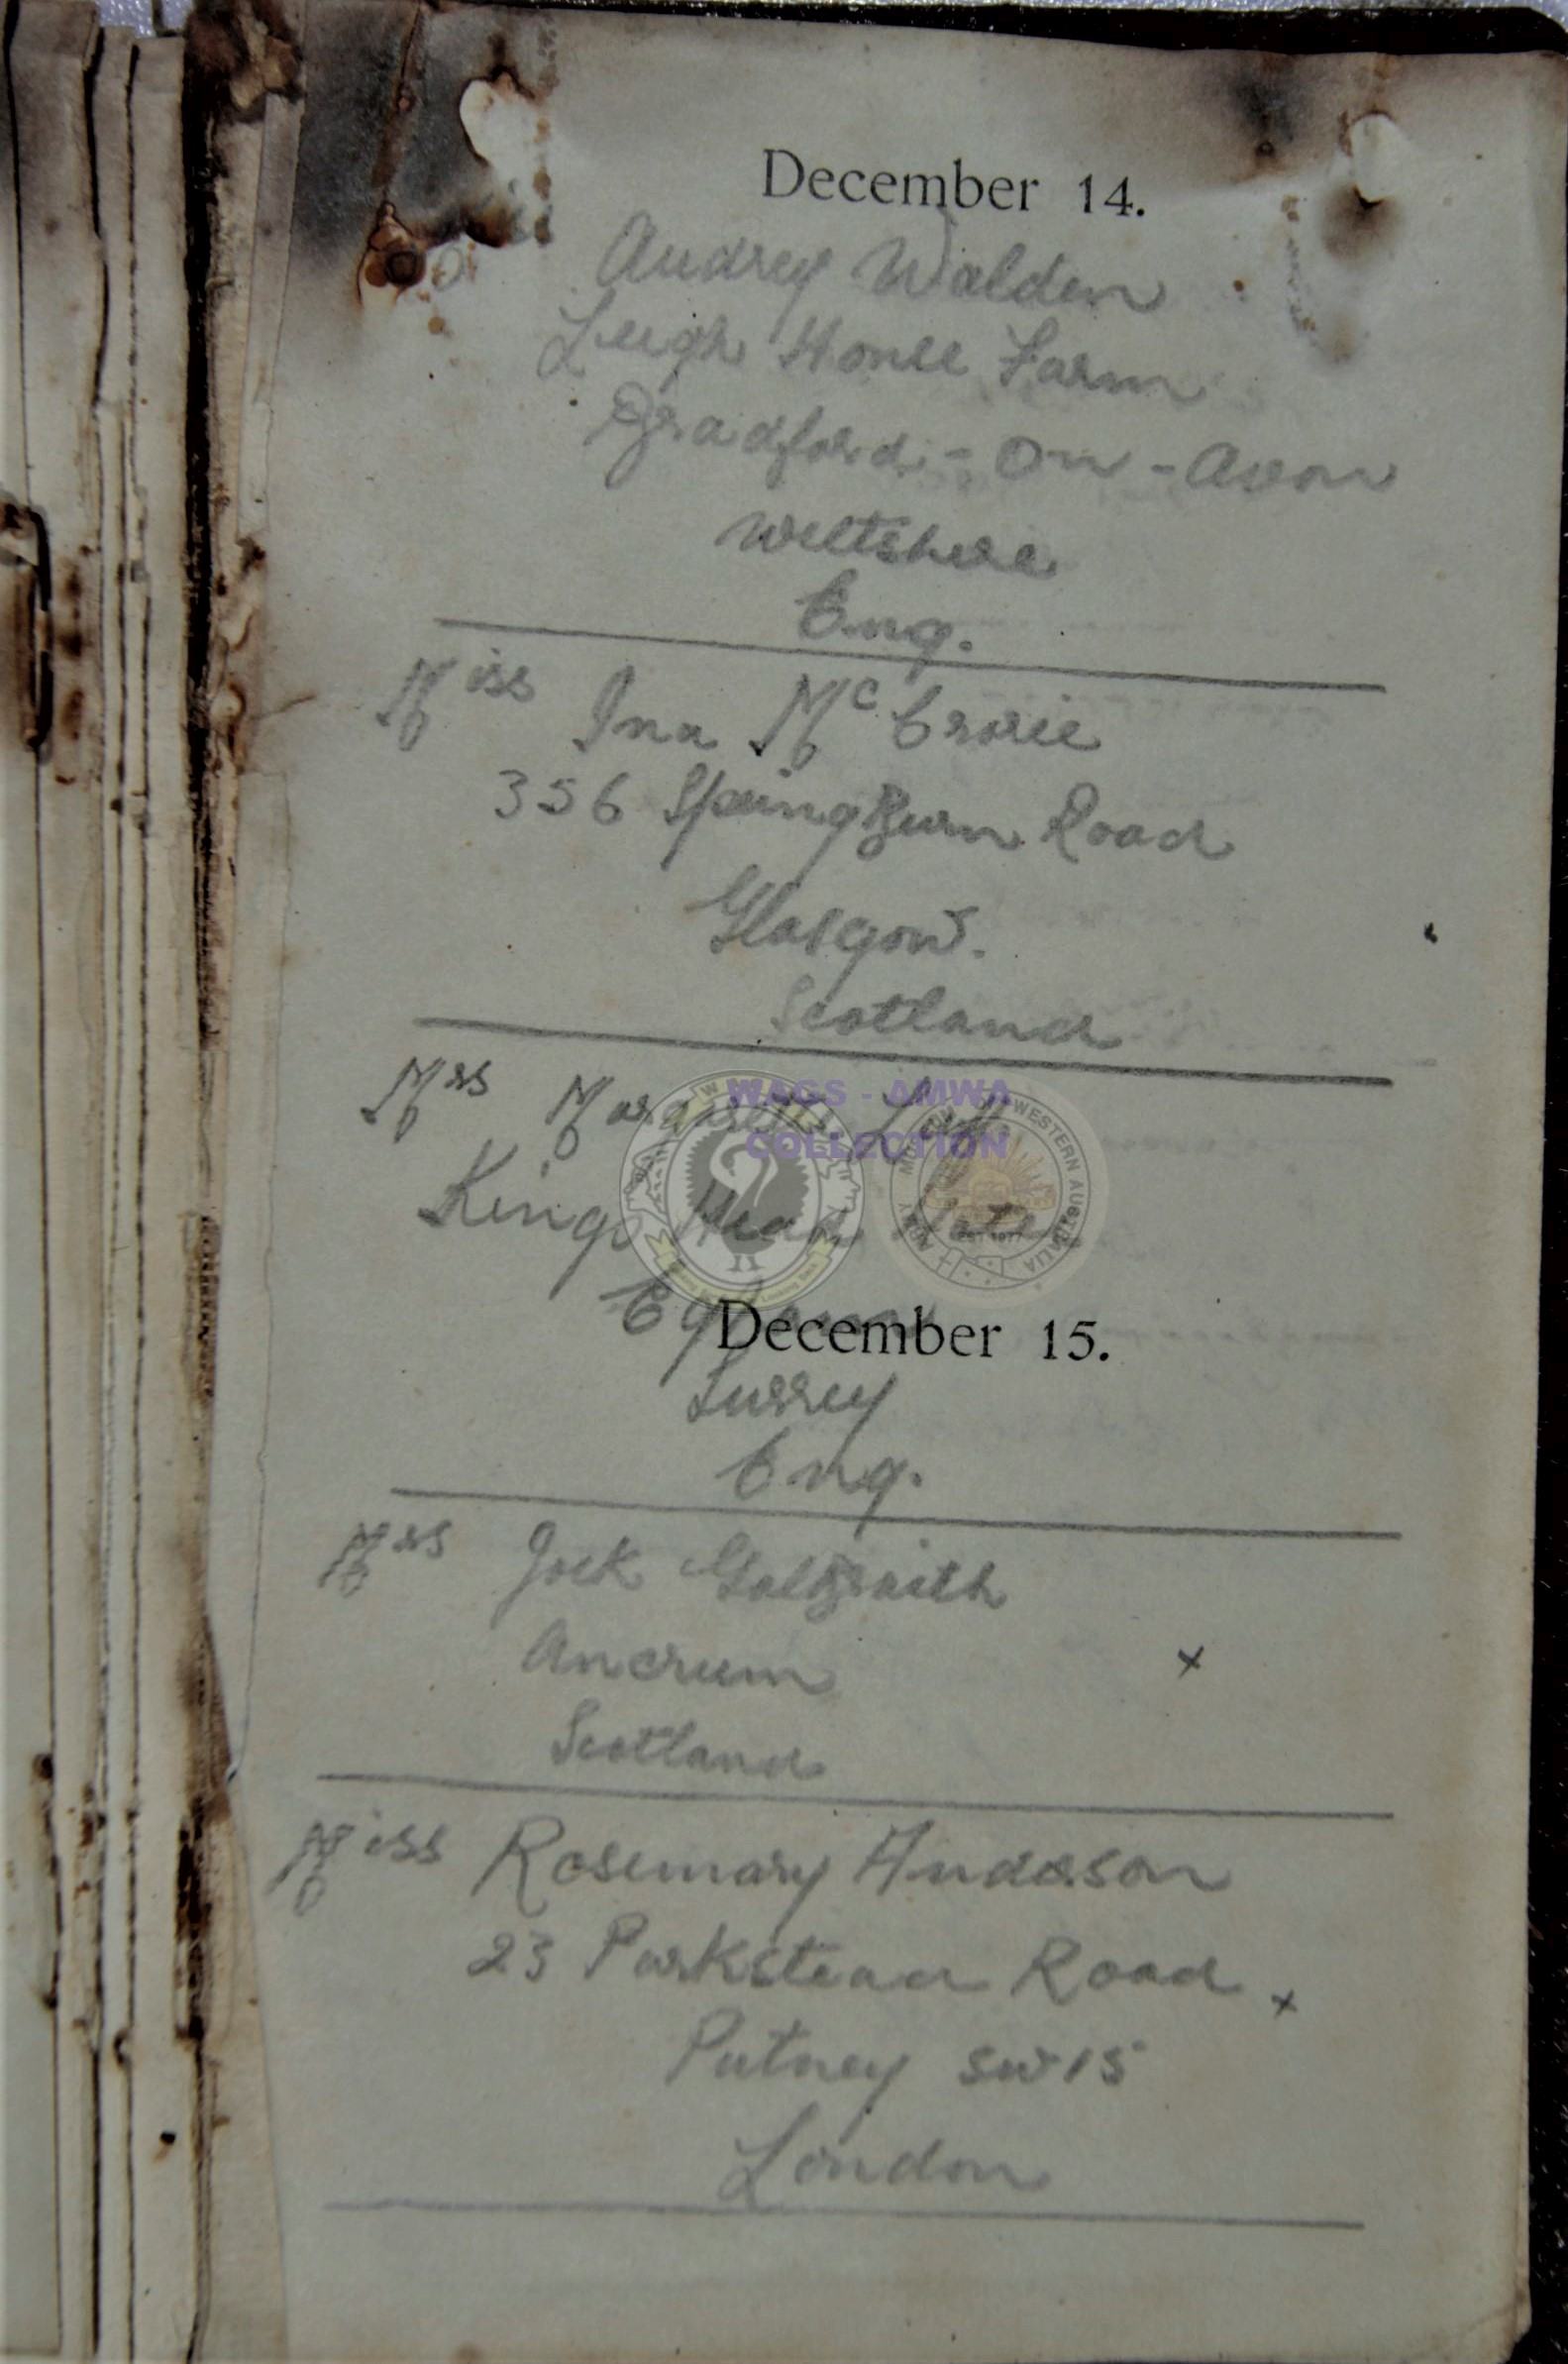 December 14.
Audrey Walden
Leigh House Farm
Bradford-On-Avon
Wiltshire
Eng.
Miss Ina Mc Crorie
356 SpringBurn Road
Glasgow.
Scotland
Mrs Margarette
WAGS - AMWA
COLLECTION
Kings Head
Egham
December 15.
Surrey
Eng.
Mrs Jock Goldsmith
Ancrum
x
Scotland
Miss Rosemary Anderson
23 Parkstead Road x
Putney SW15
London